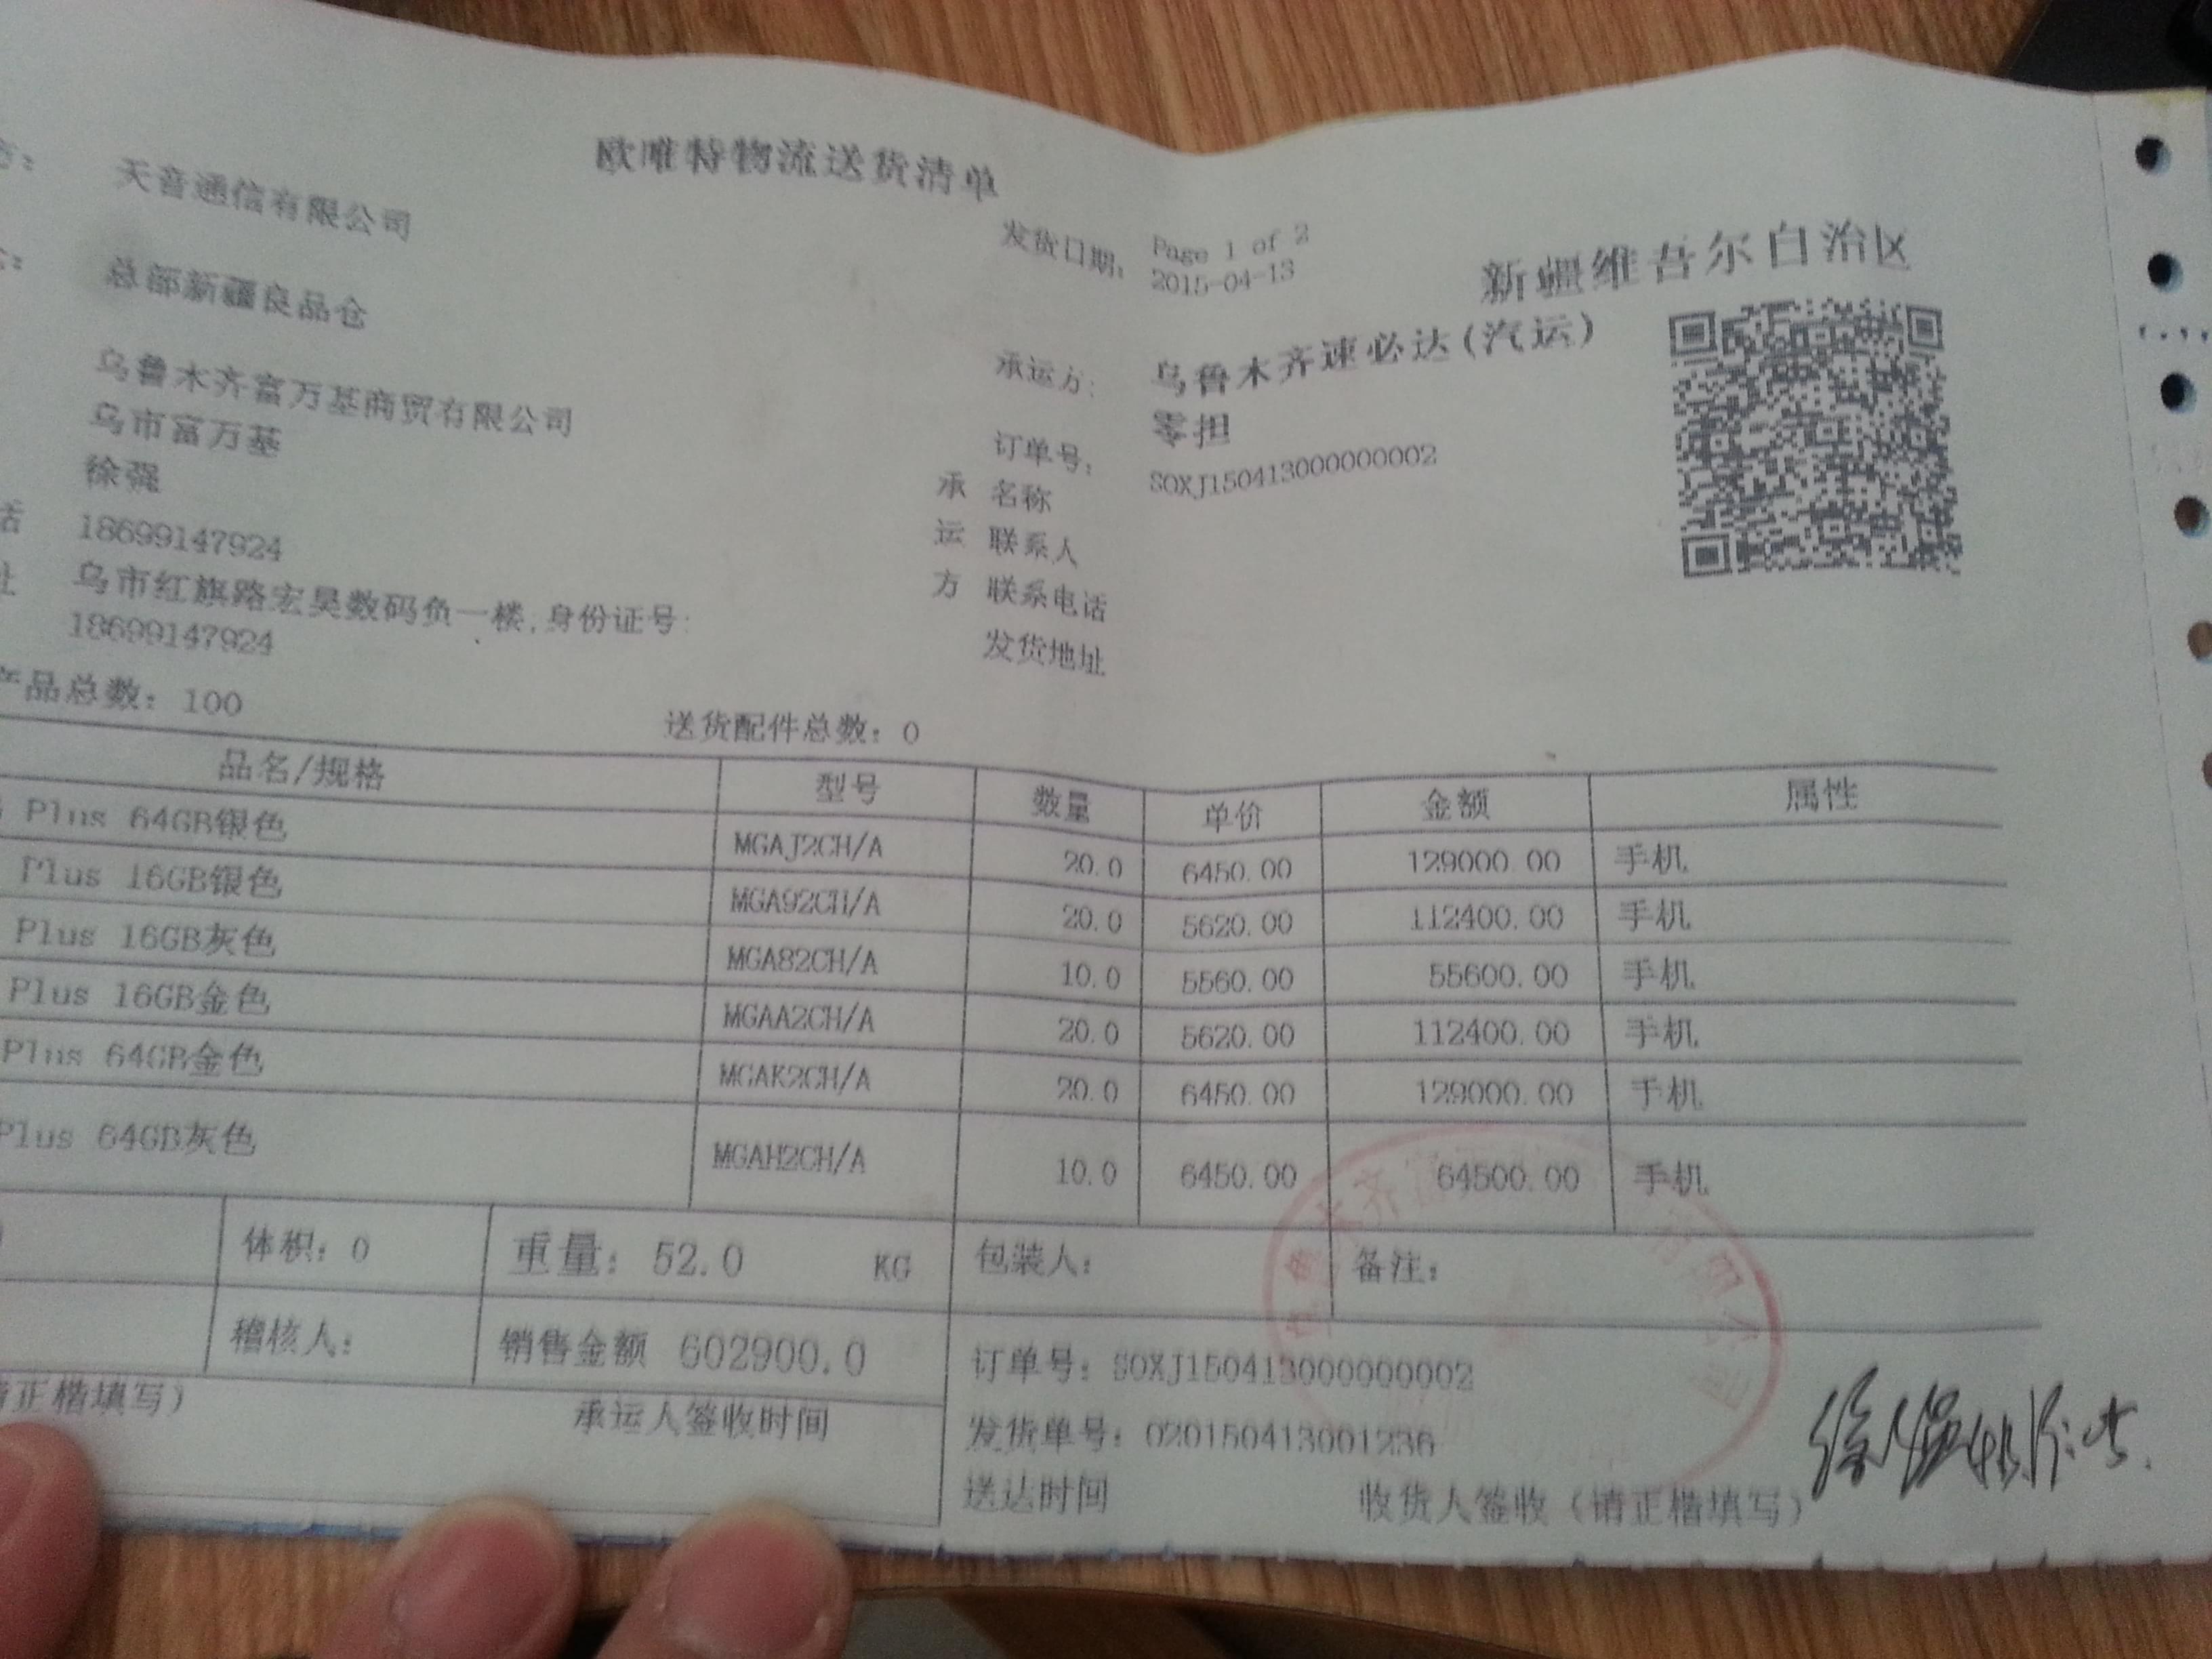 欧唯特物流送货清单
天音通信有限公司
发货日期: Page 1 of 2
2015-04-13
新疆维吾尔自治区
总部新疆良品仓
承运方: 乌鲁木齐速必达(汽运)
零担
乌鲁木齐富万基商贸有限公司
乌市富万基
订单号: SOXJ150413000000002
徐强
承 名称
18699147924
运 联系人
乌市红旗路宏昊数码负一楼,身份证号:
方 联系电话
18699147924
发货地址
产品总数: 100
送货配件总数: 0
品名/规格 型号 数量 单价 金额 属性
Plus 64GB银色 MGAJ2CH/A 20.0 6450.00 129000.00 手机
Plus 16GB银色 MGA92CH/A 20.0 5620.00 112400.00 手机
Plus 16GB灰色 MGA82CH/A 10.0 5560.00 55600.00 手机
Plus 16GB金色 MGAA2CH/A 20.0 5620.00 112400.00 手机
Plus 64GB金色 MGAK2CH/A 20.0 6450.00 129000.00 手机
Plus 64GB灰色 MGAH2CH/A 10.0 6450.00 64500.00 手机
体积: 0 重量: 52.0 KG 包装人: 备注:
稽核人: 销售金额 602900.0 订单号: SOXJ150413000000002
请正楷填写) 承运人签收时间
发货单号: 020150413001236
送达时间 收货人签收(请正楷填写)
徐强